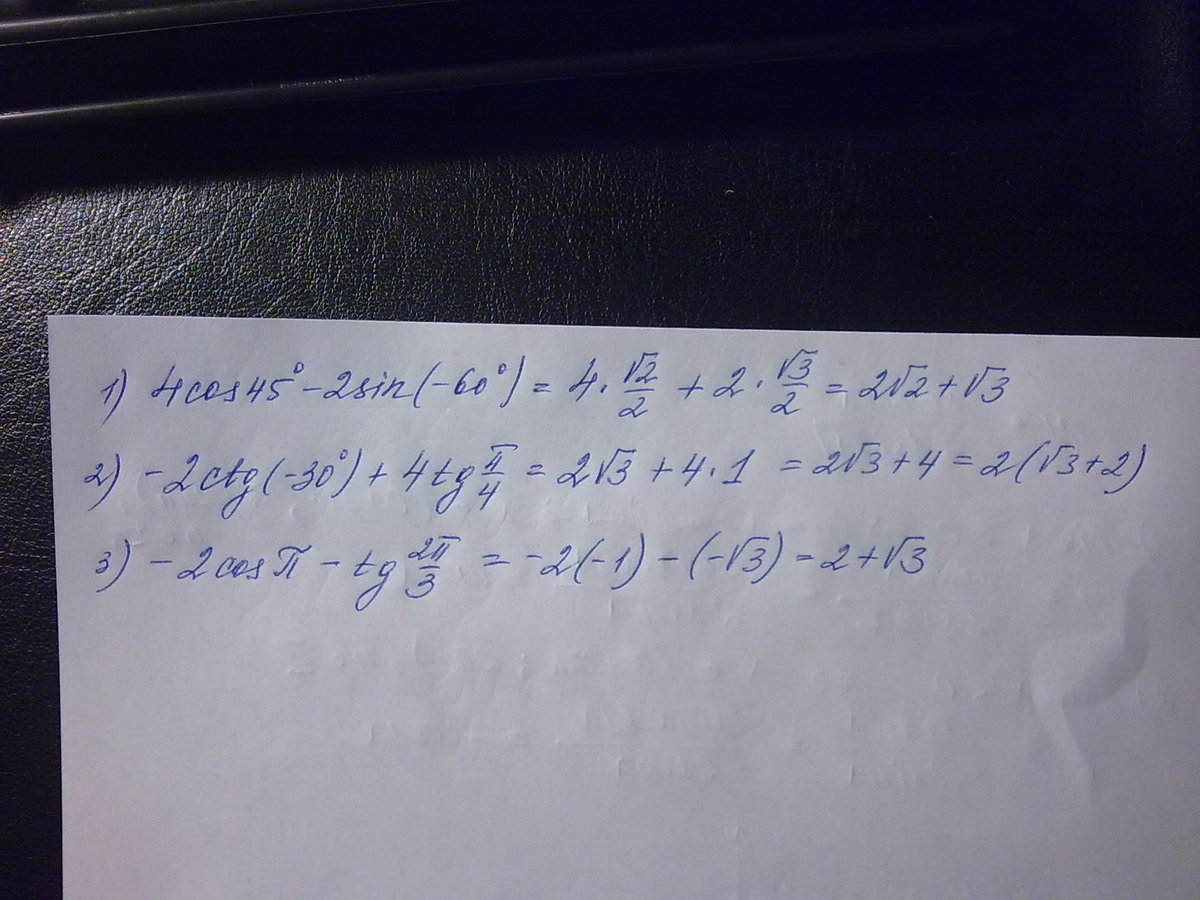 1) 4cos45° - 2sin(-60°) = 4 · √2/2 + 2 · √3/2 = 2√2 + √3
2) -2ctg(-30°) + 4tg π/4 = 2√3 + 4 · 1 = 2√3 + 4 = 2(√3 + 2)
3) -2cosπ - tg 2π/3 = -2(-1) - (-√3) = 2 + √3